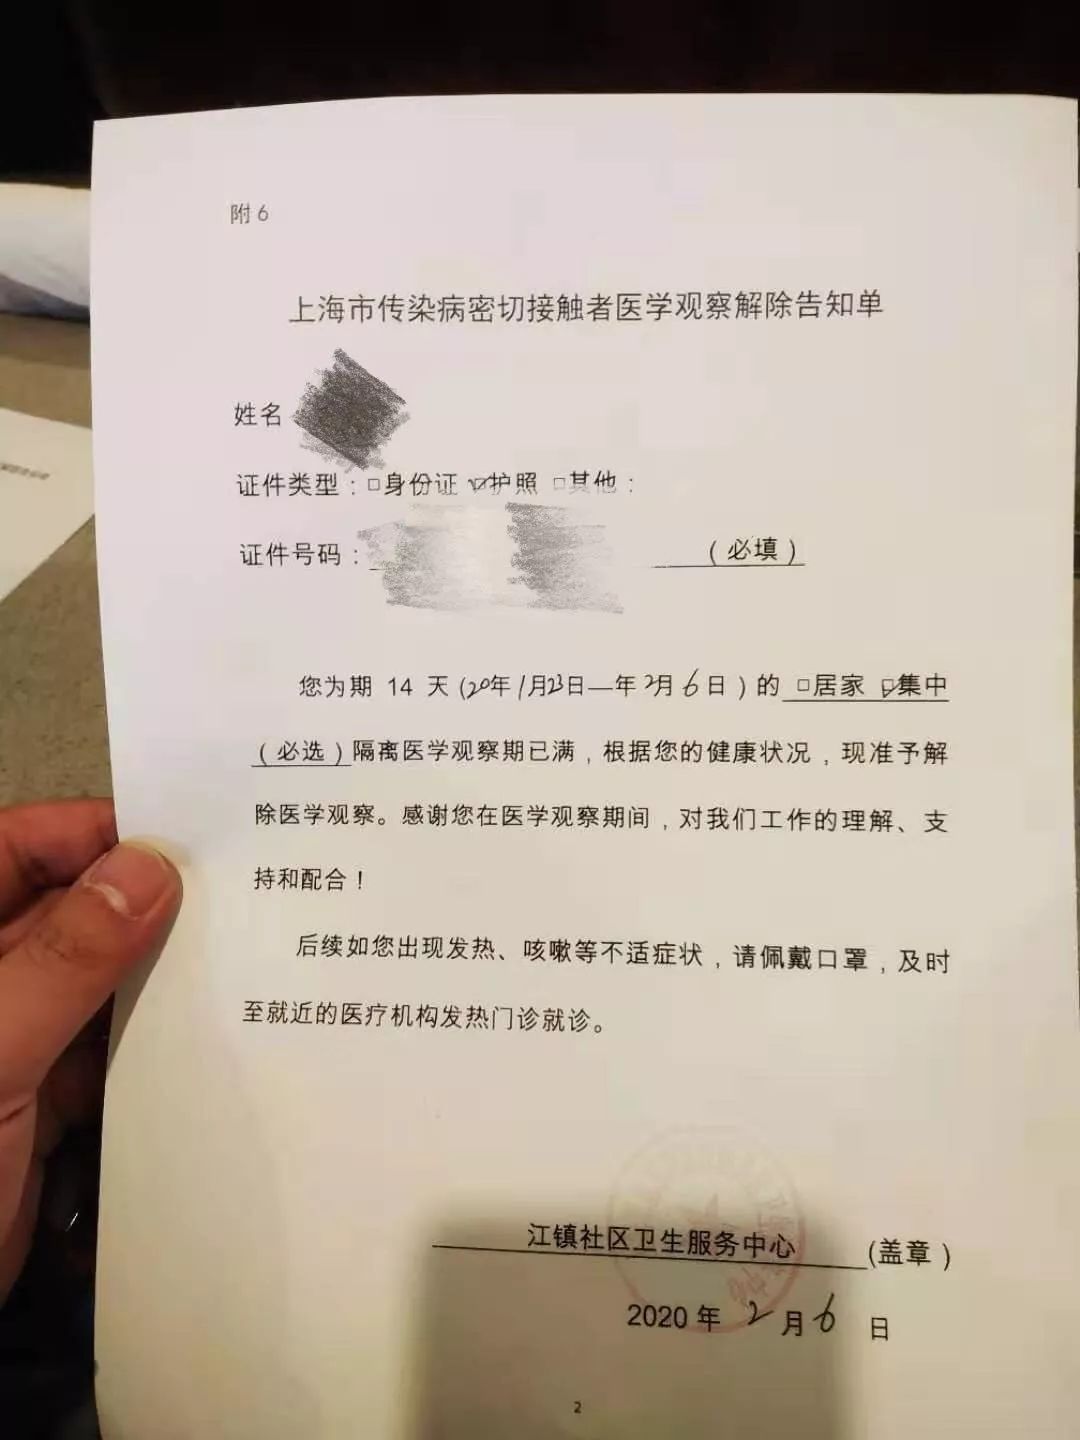 附6
上海市传染病密切接触者医学观察解除告知单
姓名
证件类型：□身份证 ☑护照 □其他：
证件号码： （必填）
您为期 14 天(20年1月23日—年2月6日）的 □居家 ☑集中
（必选）隔离医学观察期已满，根据您的健康状况，现准予解
除医学观察。感谢您在医学观察期间，对我们工作的理解、支
持和配合！
后续如您出现发热、咳嗽等不适症状，请佩戴口罩，及时
至就近的医疗机构发热门诊就诊。
江镇社区卫生服务中心 (盖章）
2020 年 2 月 6 日
2